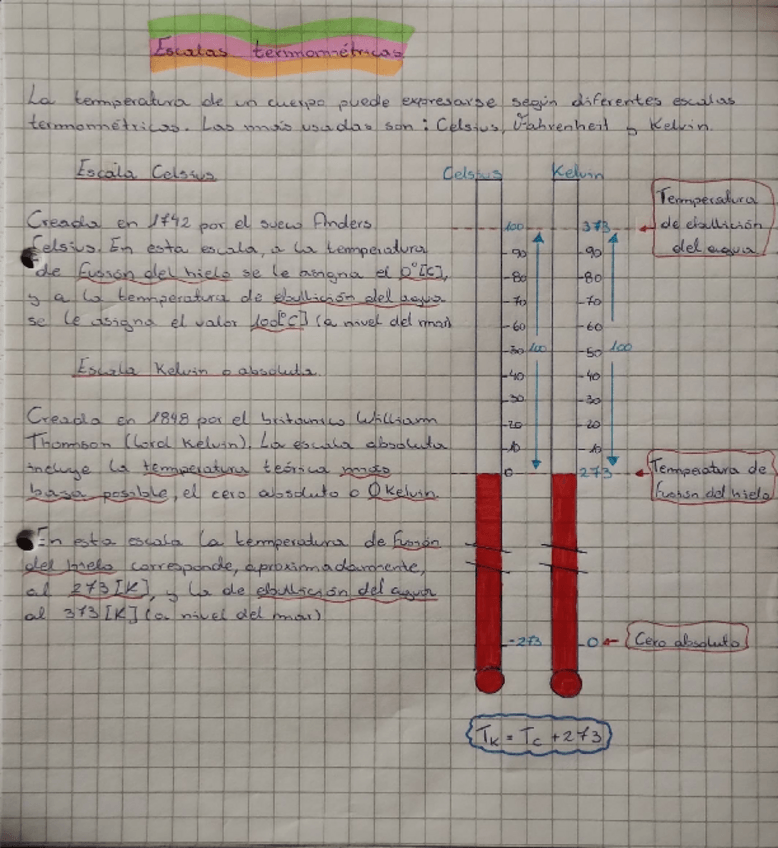 Escalas termométricas
La temperatura de un cuerpo puede expresarse según diferentes escalas
termométricas. Las más usadas son: Celsius, Fahrenheit y Kelvin.
Escala Celsius
Creada en 1742 por el sueco Anders
Celsius. En esta escala, a la temperatura
de fusión del hielo se le asigna el 0°[C],
y a la temperatura de ebullición del agua
se le asigna el valor 100[°C] (a nivel del mar)
Escala Kelvin o absoluta.
Creada en 1848 por el britanico William
Thomson (Lord Kelvin). La escala absoluta
incluye la temperatura teórica más
baja posible, el cero absoluto o 0 kelvin.
En esta escala la temperatura de fusión
del hielo corresponde, aproximadamente,
al 273[K], y la de ebullición del agua
al 373[K] (a nivel del mar)
Celsius
100
90
80
70
60
50
40
30
20
10
0
-273
100
Kelvin
373
90
80
70
60
50
40
30
20
10
273
0
100
Temperatura
de ebullición
del agua
Temperatura de
fusión del hielo
Cero absoluto
TK = TC + 273